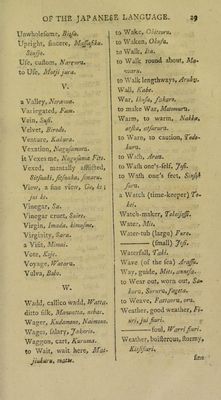 OF THE JAPANESE LANGUAGE. 29
Unwholesome, Bijso.
Upright, sincere, Massasika.
Sinsje.
Use, custom, Narawu.
to Use, Motji jura.
V.
a Valley,
Variegated, Fam.
Vein, Susi.
Velvet, Birodo.
Venture, Kakura.
Vexation, Nagusamuru.
it Vexes me, Nagusama Fito.
Vexed, mentally afflicted,
View, a fine view, Ge, ki
jui ke.
Vinegar, Su.
Vinegar cruet, Suire.
Virgin, Imada, kimusme.
Virginity, Sara.
a Visit, Mimai.
Vote, Koje.
Voyage, Wataru.
Vulva, Bobo.
W.
Wadd, callico wadd, Watta.
ditto silk, Momotta, nebas.
Wager, Kudamono, Naimono.
Wages, salary, Jakurio.
Waggon, cart, Kuruma.
to Wait, wait here, Mat-
jiukuru, matte.
to Wake, Okitsuru.
to Waken, Okosu.
to Walk, Ita.
to Walk round about, Ma-
waru.
to Walk lengthways, Aruku.
Wall, Kabe.
War, Ikusa, fikare.
to make War, Momuru.
Warm, to warm, Nakka,
atska, atsaruru.
to Warn, to caution, Todo-
kuru.
to Wash, Arau.
to Wash one's-self, Jesi.
to Wash one's feet,
suru.
a Watch (time-keeper) To-
kei.
Watch-maker, Tokeijassi.
Water, Mis.
Water-tub (large) Furo.
(small) Josi.
Waterfall, Taki.
Wave (of the sea) Arassa.
Way, guide, Mits, annesa.
to Wear out, worn out, Sa-
kuru, Soruru, fugeta.
to Weave, Fattaoru, oru.
Weather, good weather, Fi-
uri, jui fiuri.
foul, Warri fiuri.
Weather, boisterous, stormy,
Kissifiuri.